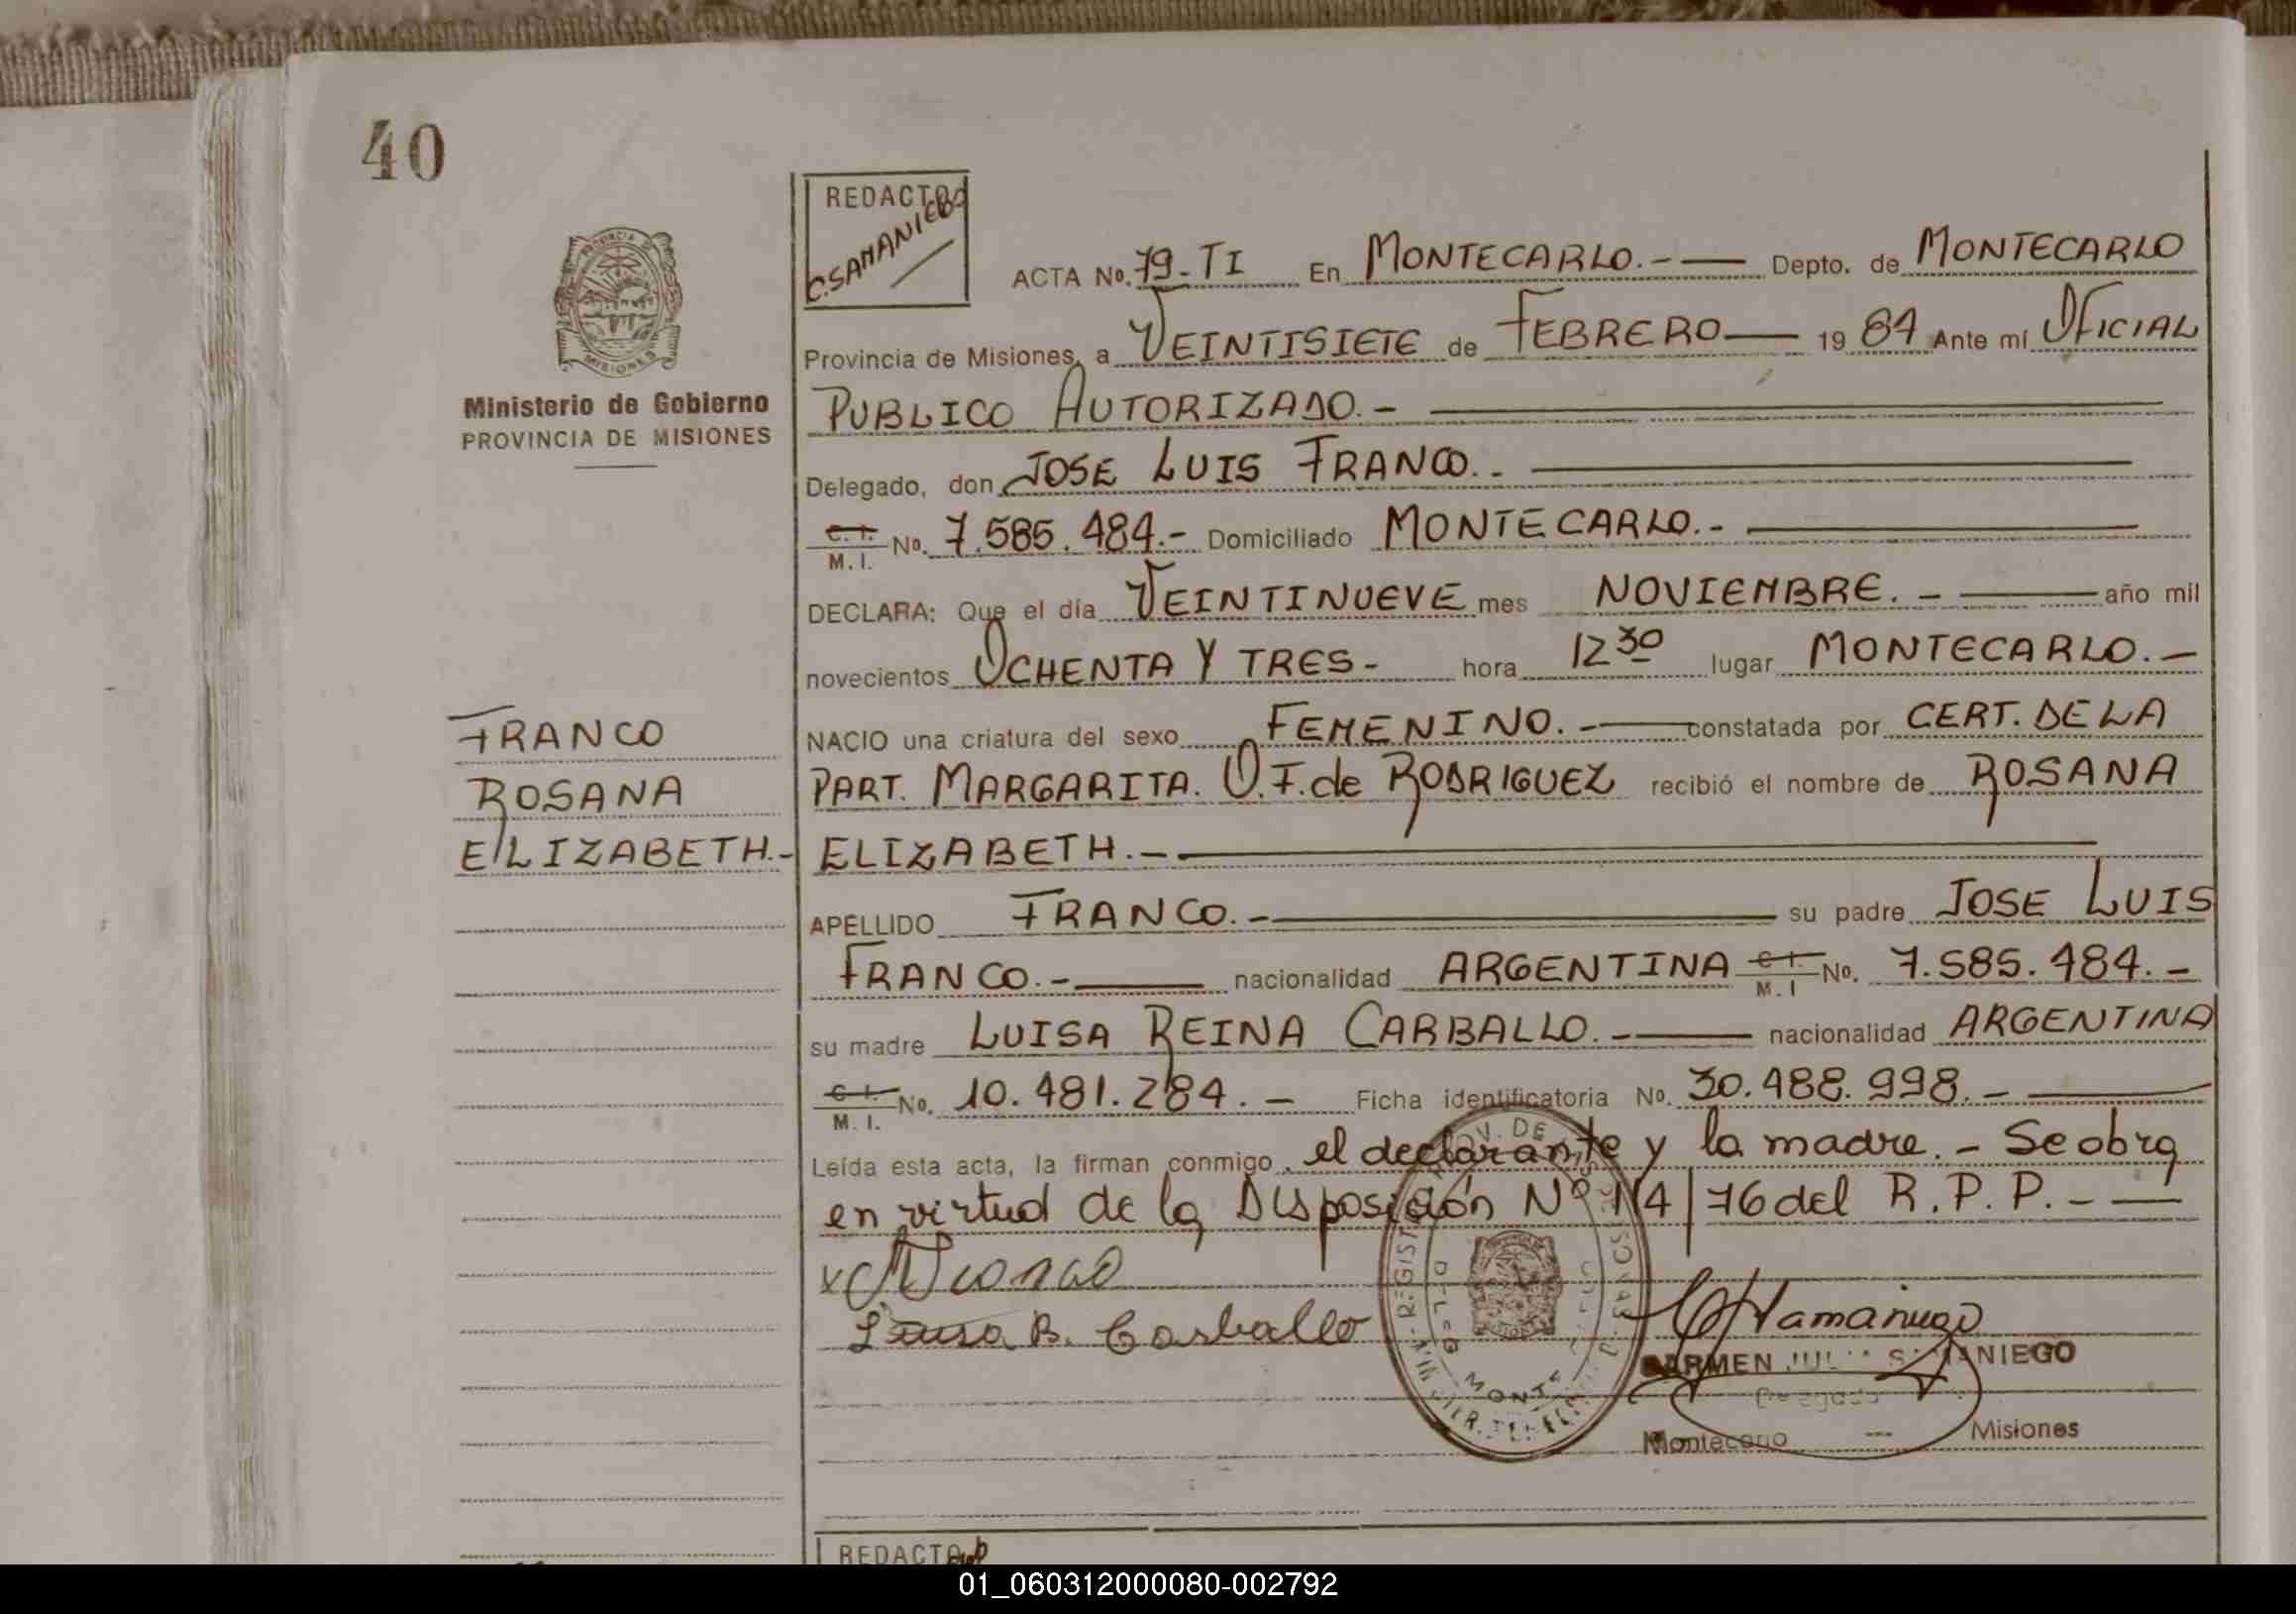 40
REDACTO
C. SAMANIEGO
PROVINCIA DE
MISIONES
Ministerio de Gobierno
PROVINCIA DE MISIONES
ACTA No. 79-TI En MONTECARLO.- Depto. de MONTECARLO
Provincia de Misiones, a VEINTISIETE de FEBRERO 1984 Ante mí OFICIAL
PUBLICO AUTORIZADO.-
Delegado, don JOSE LUIS FRANCO.-
C. I. / M. I. No. 7.585.484.- Domiciliado MONTECARLO.-
DECLARA: Que el día VEINTINUEVE mes NOVIEMBRE.- año mil
novecientos OCHENTA Y TRES- hora 12 30 lugar MONTECARLO.-
FRANCO
NACIO una criatura del sexo FEMENINO.- constatada por CERT. DE LA
ROSANA
PART. MARGARITA. O.F. de RODRIGUEZ recibió el nombre de ROSANA
ELIZABETH.-
ELIZABETH.-
APELLIDO FRANCO.- su padre JOSE LUIS
FRANCO.- nacionalidad ARGENTINA C. I. / M. I No. 7.585.484.-
su madre LUISA REINA CARBALLO.- nacionalidad ARGENTINA
C. I. / M. I. No. 10.481.284.- Ficha identificatoria No. 30.488.998.-
Leída esta acta, la firman conmigo, el declarante y la madre.- Se obra
en virtud de la Disposición Nº 114/76 del R.P.P.-
Luisa R. Carballo
CARMEN JULIA SAMANIEGO
Delegado
Montecarlo - Misiones
REDACTO
01_060312000080-002792